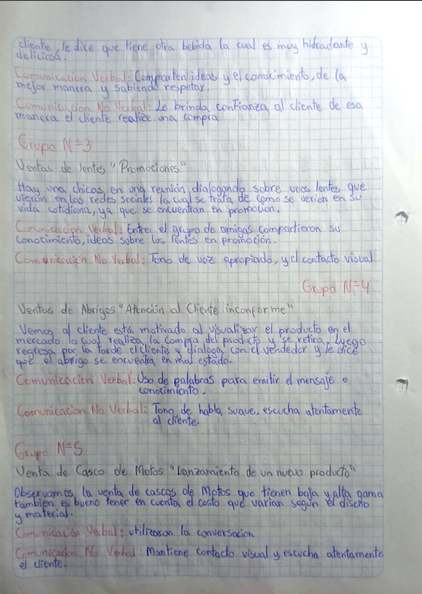 cliente, le dice que tiene otra bebida la cual es muy hidradante y
deliciosa.
Comunicacion Verbal: Comparten ideas y el conocimiento, de la
mejor manera y sabiendo respetar.
Comunicacion No Verbal: Le brinda confianza al cliente de esa
manera el cliente realize una compra
Grupo N=3
Ventas de lentes "Promociones"
Hay unas chicas, en una reunión, dialogando sobre unos lentes que
vieron en las redes sociales la cual se trata de como se verion en su
vida cotidiana, ya que se encuentran en promoción.
Comunicación Verbal: Entre el grupo de amigas compartieron su
conocimiento, ideas sobre los lentes en promoción.
Comunicación No Verbal: Tono de voz apropiado, y el contacto visual
Grupo N=4
Ventas de Abrigos "Atención al Cliente inconforme"
Vemos al cliente está motivado al visualizar el producto en el
mercado lo cual realiza la compra del producto y se retira. Luego
regresa por la tarde el cliente y dialoga con el vendedor y le dice
que el abrigo se encuentra en mal estado.
Comunicación Verbal: Uso de palabras para emitir el mensaje o
conocimiento.
Comunicación No Verbal: Tono de habla suave, escucha atentamente
al cliente.
Grupo N=5
Venta de Casco de Motos "Lanzamiento de un nuevo producto"
Observamos, la venta de cascos de Motos que tienen baja y alta gama
también es bueno tener en cuenta el costo que varian según el diseño
y material.
Comunicación Verbal: utilizaron la conversacion
Comunicación No Verbal: Mantiene contacto visual y escucha atentamente
el cliente.